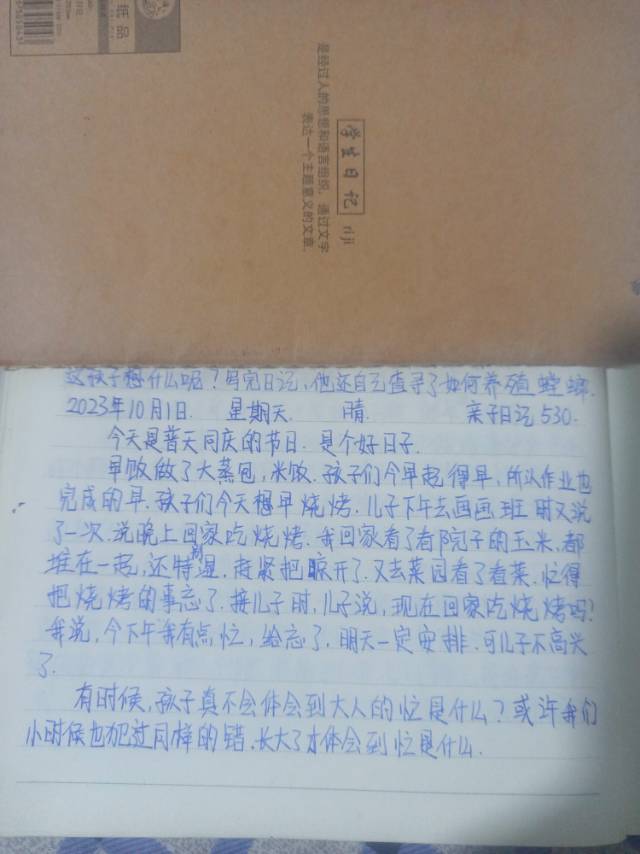 纸品
学生日记 riji
是经过人的思想和语言组织，通过文字
表达一个主题意义的文章.
这孩子想什么呢？写完日记，他还自己查寻了如何养殖螳螂.
2023年10月1日. 星期天. 晴. 亲子日记530.
今天是普天同庆的节日.是个好日子.
早饭做了大蒸包，米饭.孩子们今早起得早，所以作业也
完成的早.孩子们今天想早烧烤.儿子下午去画画班时又说
了一次.说晚上回家吃烧烤.我回家看了看院子的玉米，都
堆在一起，还特别湿，赶紧把晾开了.又去菜园看了看菜.忙得
把烧烤的事忘了.接儿子时，儿子说，现在回家吃烧烤吗？
我说，今下午我有点忙，给忘了，明天一定安排.可儿子不高兴
了.
有时候，孩子真不会体会到大人的忙是什么？或许我们
小时候也犯过同样的错.长大了才体会到忙是什么.